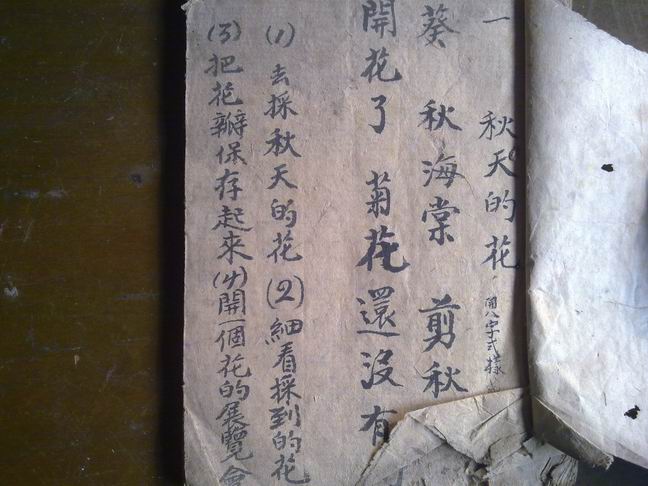 一 秋天的花 八字式樣
葵 秋海棠 剪秋
開花了 菊花還沒有
(1)去採秋天的花(2)細看採到的花
(3)把花瓣保存起來(4)開一個花的展覽會